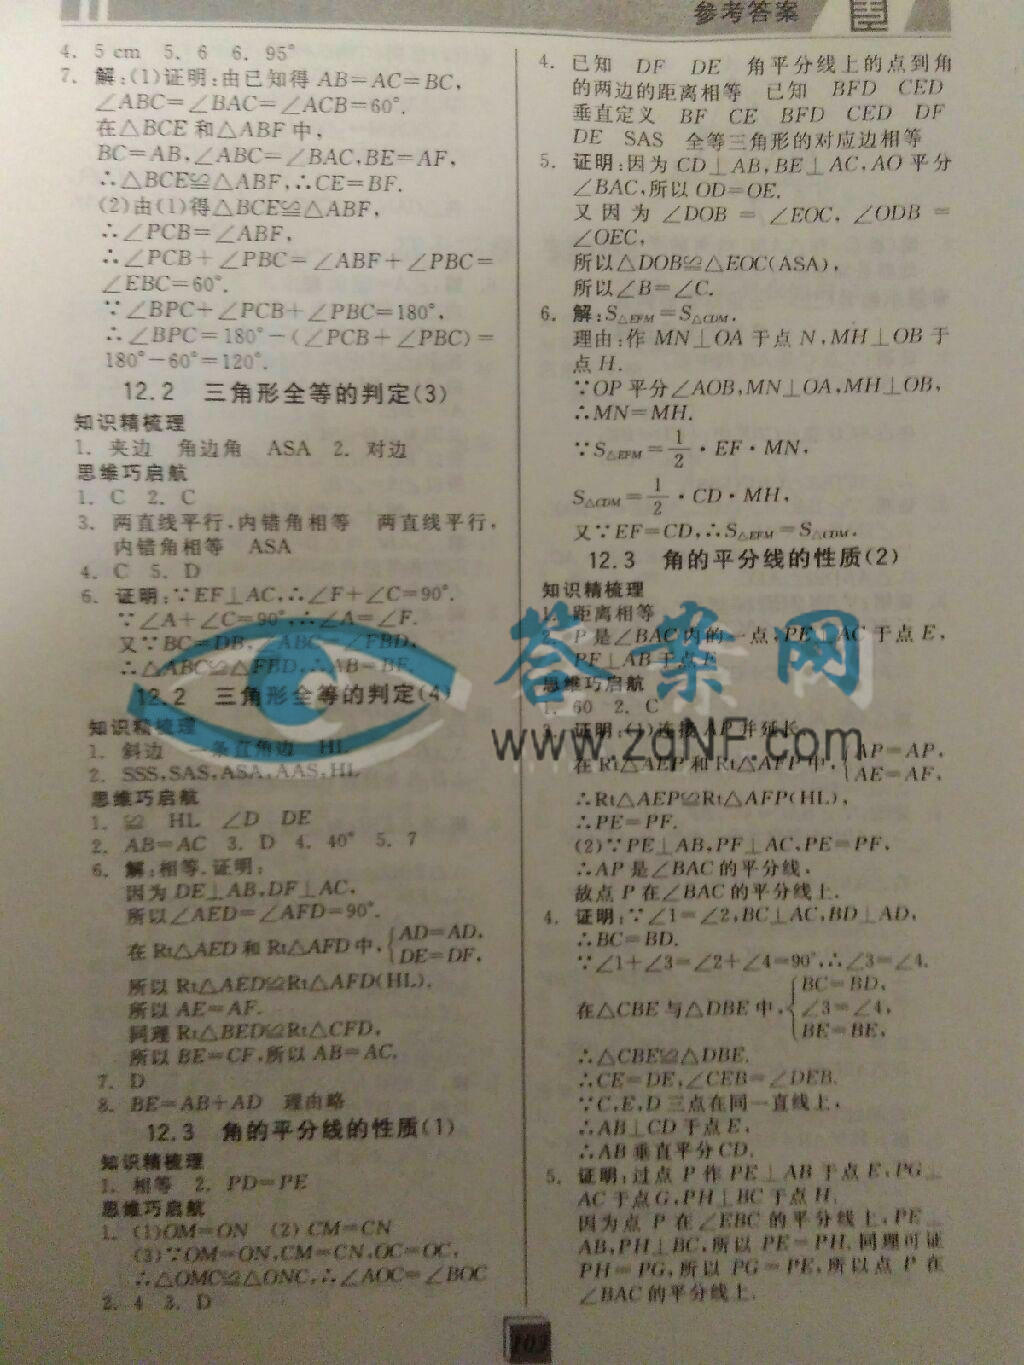 参考答案
4. 5 cm 5. 6 6. 95°
7. 解:(1)证明:由已知得 AB=AC=BC,
∠ABC=∠BAC=∠ACB=60°.
在△BCE和△ABF中,
BC=AB,∠ABC=∠BAC,BE=AF,
∴△BCE≌△ABF,∴CE=BF.
(2)由(1)得△BCE≌△ABF,
∴∠PCB=∠ABF,
∴∠PCB+∠PBC=∠ABF+∠PBC=
∠EBC=60°.
∵∠BPC+∠PCB+∠PBC=180°,
∴∠BPC=180°-(∠PCB+∠PBC)=
180°-60°=120°.
12.2 三角形全等的判定(3)
知识精梳理
1. 夹边 角边角 ASA 2. 对边
思维巧启航
1. C 2. C
3. 两直线平行,内错角相等 两直线平行,
内错角相等 ASA
4. C 5. D
6. 证明:∵EF⊥AC,∴∠F+∠C=90°.
∵∠A+∠C=90°,∴∠A=∠F.
又∵BC=DB,∠ABC=∠FBD,
∴△ABC≌△FBD,∴AB=BF.
12.2 三角形全等的判定(4)
知识精梳理
1. 斜边 一条直角边 HL
2. SSS,SAS,ASA,AAS,HL
思维巧启航
1. ≌ HL ∠D DE
2. AB=AC 3. D 4. 40° 5. 7
6. 解:相等.证明:
因为DE⊥AB,DF⊥AC,
所以∠AED=∠AFD=90°.
在Rt△AED和Rt△AFD中,{AD=AD,
DE=DF,
所以Rt△AED≌Rt△AFD(HL).
所以AE=AF.
同理Rt△BED≌Rt△CFD,
所以BE=CF,所以AB=AC.
7. D
8. BE=AB+AD 理由略
12.3 角的平分线的性质(1)
知识精梳理
1. 相等 2. PD=PE
思维巧启航
1. (1)OM=ON (2) CM=CN
(3)∵OM=ON,CM=CN,OC=OC,
∴△OMC≌△ONC,∴∠AOC=∠BOC
2. 4 3. D
4. 已知 DF DE 角平分线上的点到角
的两边的距离相等 已知 BFD CED
垂直定义 BF CE BFD CED DF
DE SAS 全等三角形的对应边相等
5. 证明:因为CD⊥AB,BE⊥AC,AO平分
∠BAC,所以OD=OE.
又因为∠DOB=∠EOC,∠ODB=
∠OEC,
所以△DOB≌△EOC(ASA),
所以∠B=∠C.
6. 解:S△EFM=S△CDM.
理由:作MN⊥OA于点N,MH⊥OB于
点H.
∵OP平分∠AOB,MN⊥OA,MH⊥OB,
∴MN=MH.
∵S△EFM=1/2·EF·MN,
S△CDM=1/2·CD·MH,
又∵EF=CD,∴S△EFM=S△CDM.
12.3 角的平分线的性质(2)
知识精梳理
1. 距离相等
2. P是∠BAC内的一点,PE⊥AC于点E,
PF⊥AB于点F
思维巧启航
1. 60 2. C
3. 证明:(1)连接AP并延长
在Rt△AEP和Rt△AFP中,{AP=AP,
AE=AF,
∴Rt△AEP≌Rt△AFP(HL),
∴PE=PF.
(2)∵PE⊥AB,PF⊥AC,PE=PF,
∴AP是∠BAC的平分线,
故点P在∠BAC的平分线上.
4. 证明:∵∠1=∠2,BC⊥AC,BD⊥AD,
∴BC=BD.
∵∠1+∠3=∠2+∠4=90°,∴∠3=∠4.
在△CBE与△DBE中,{BC=BD,
∠3=∠4,
BE=BE,
∴△CBE≌△DBE.
∴CE=DE,∠CEB=∠DEB.
∵C,E,D三点在同一直线上,
∴AB⊥CD于点E,
∴AB垂直平分CD.
5. 证明:过点P作PE⊥AB于点E,PG⊥
AC于点G,PH⊥BC于点H.
因为点P在∠EBC的平分线上,PE⊥
AB,PH⊥BC,所以PE=PH.同理可证
PH=PG,所以PG=PE,所以点P在
∠BAC的平分线上.
答案网
www.zqNF.com
103